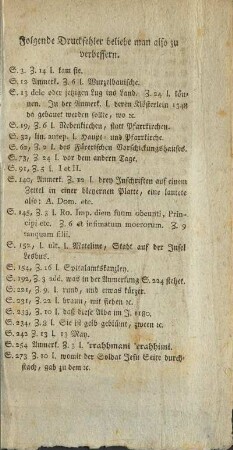 Folgende Druckfehler beliebe man also zu
verbessern.
S. 3. Z. 14 l. kam sie.
S. 12 Anmerk. Z. 6 l. Wurzelhautsche.
S. 13 dele oder jetzigen Lug ins Land. Z. 24 l. kön-
nen. In der Anmerk. l. deren Klösterlein 1348
da gebauet werden sollte, wo ꝛc.
S. 19, Z. 6 l. Nebenkirchen, statt Pfarrkirchen.
S. 32, lin. antep. l. Haupt- und Pfarrkirche.
S. 62, Z. 2 l. des Färerischen Vorschickungshauses.
S. 73, Z. 24 l. vor dem andern Tage.
S. 91, Z. 5 l. I et II.
S. 140, Anmerk. Z. 22 l. drey Inschriften auf einem
Zettel in einer bleyernen Platte, eine lautete
also: A. Dom. etc.
S. 145, Z. 3 l. Ro. Imp. diem suum obeunti, Prin-
cipi etc. Z. 6 et infimatum moerorum. Z. 9
tanquam filii.
S. 152, l. ult. l. Metelino, Stadt auf der Insel
Lesbus.
S. 154, Z. 16 l. Spitalamtskanzley.
S. 192, Z. 3 add. was in der Anmerkung S. 224 stehet.
S. 221, Z. 9 l. rund, und etwas kürzer.
S. 231, Z. 22 l. braun, mit sieben ꝛc.
S. 233, Z. 10 l. daß diese Alba im J. 1180.
S. 234, Z. 8 l. Sie ist gold geblümt, zween ꝛc.
S. 242 Z. 13 l. 13 May.
S. 254 Anmerk. Z. 3 l. 'rrahhmani 'rrahhimi.
S. 273 Z. 10 l. womit der Soldat Jesu Seite durch-
stach, gab zu dem ꝛc.